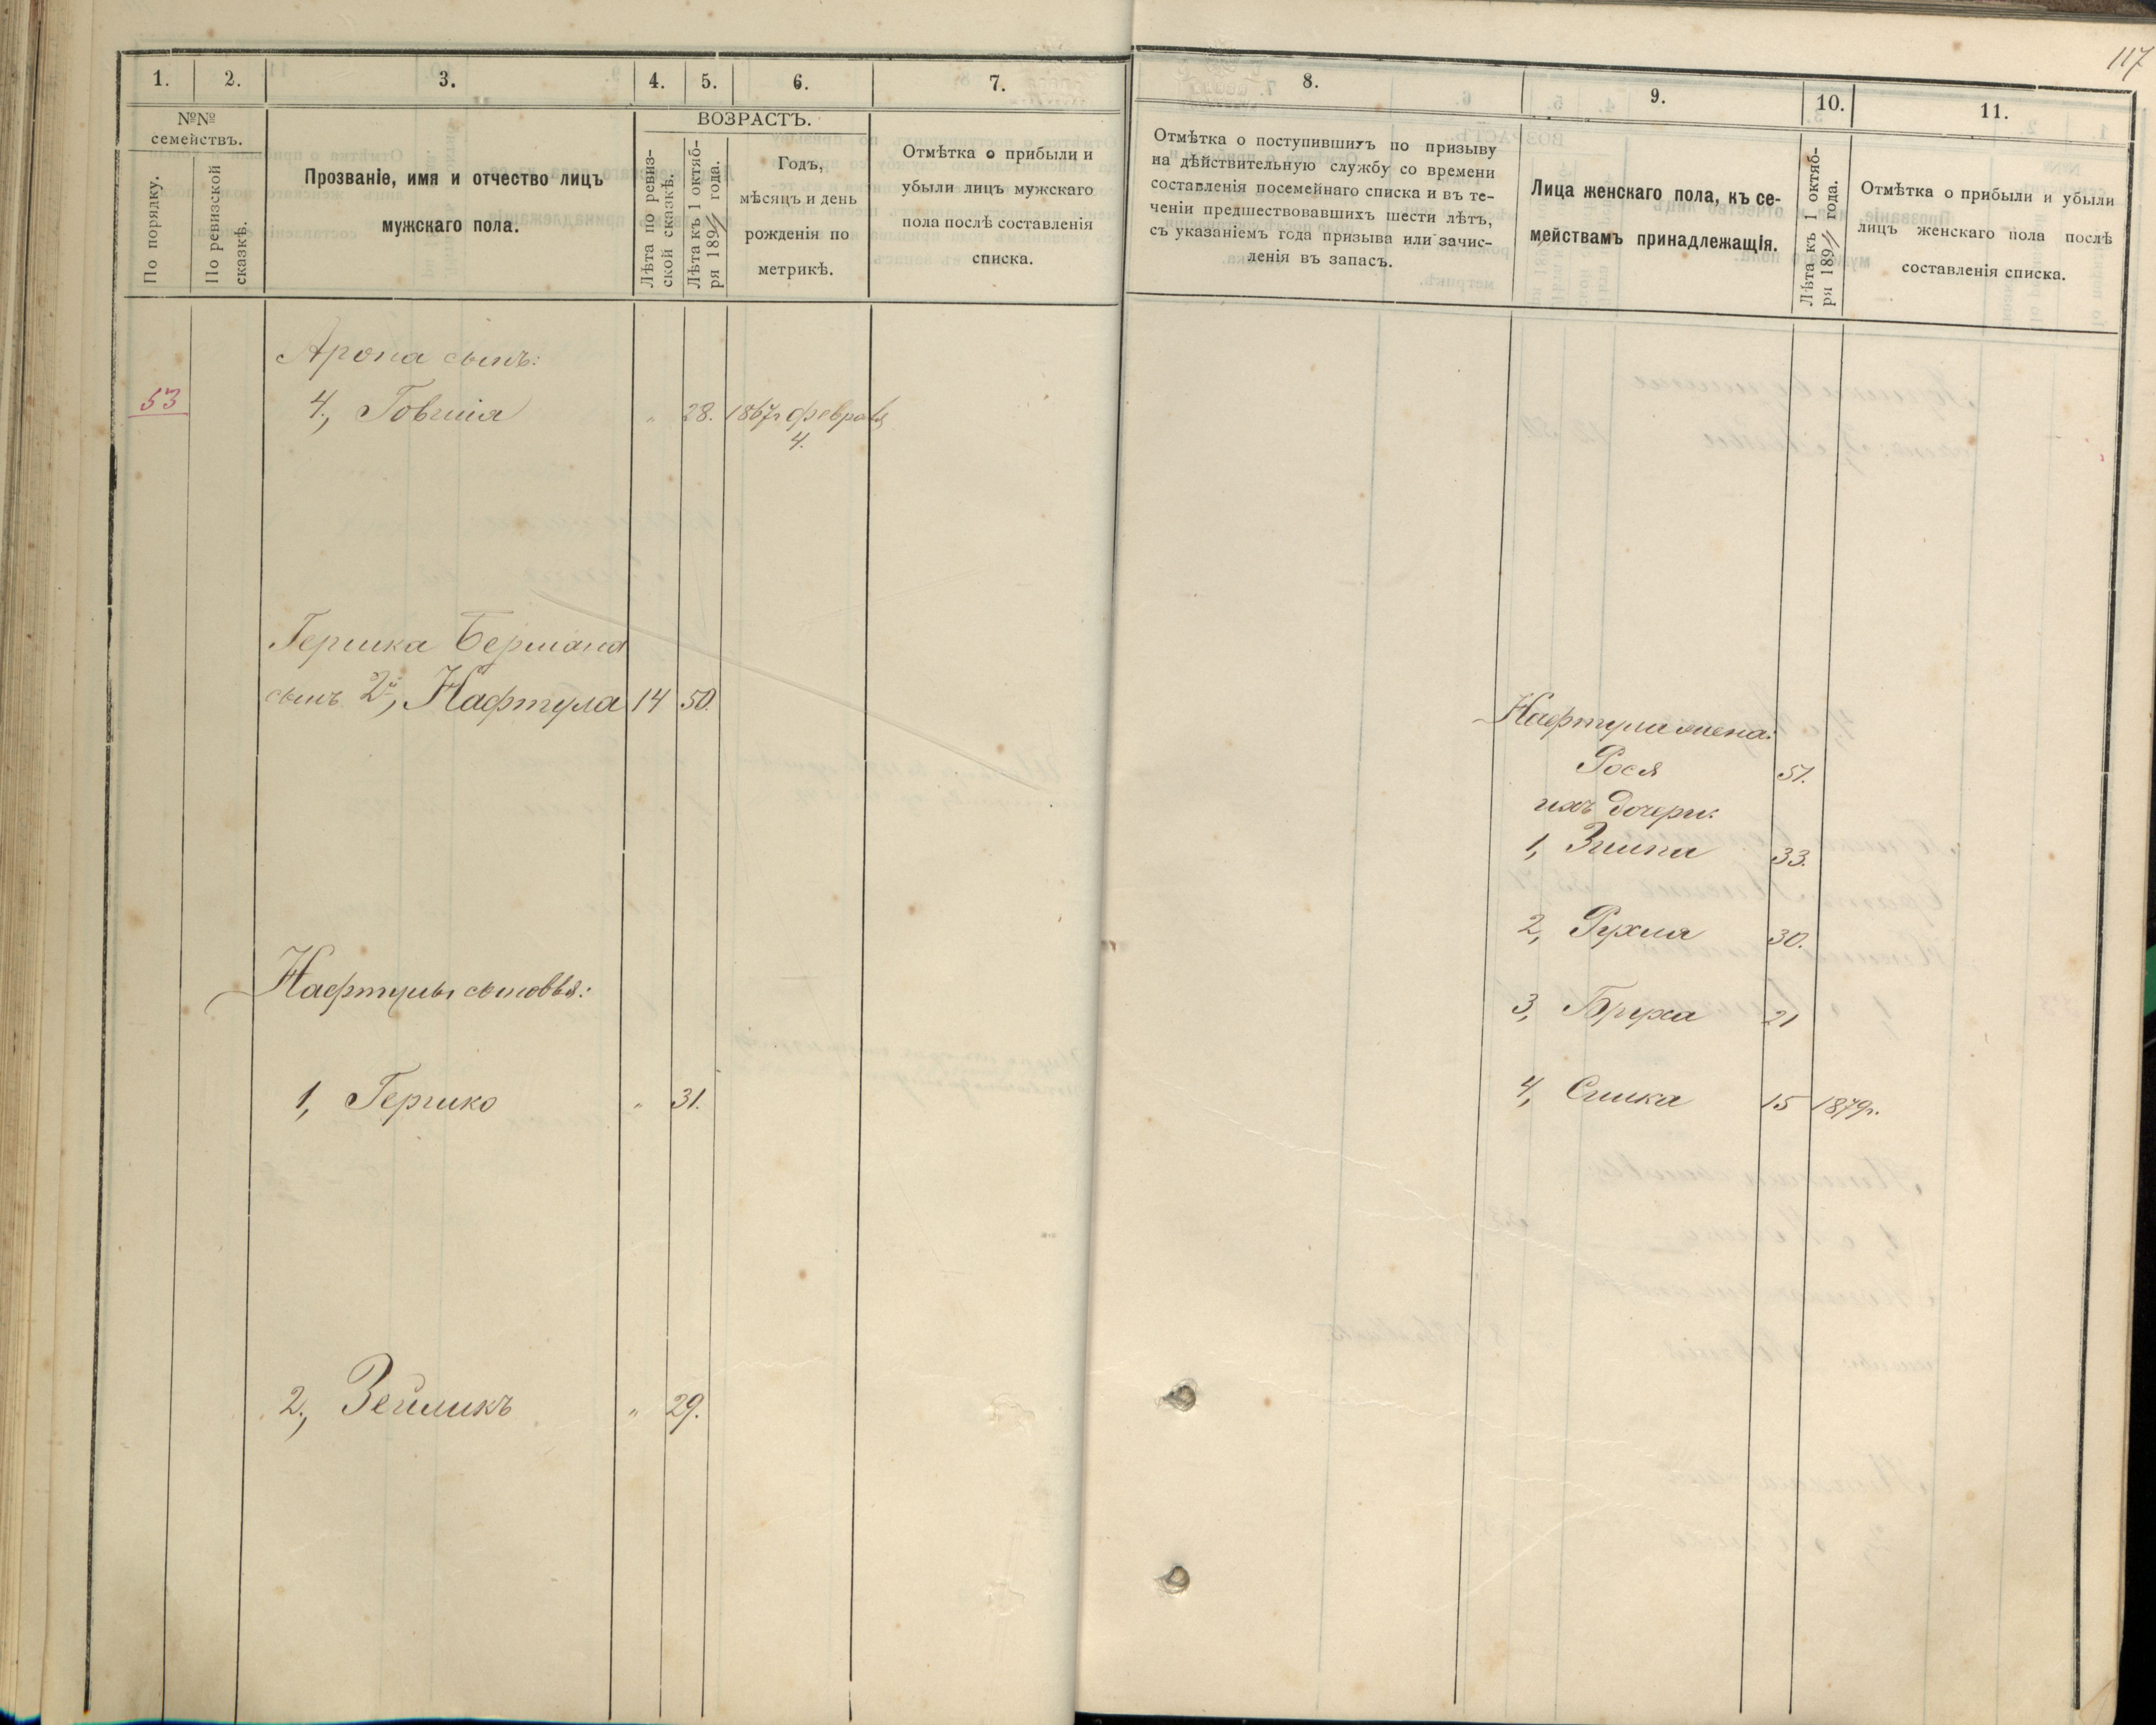 117
1. 2. 3. 4. 5. 6. 7.
№№
семействъ.
По порядку.
По ревизской
сказкѣ.
Прозваніе, имя и отчество лицъ
мужскаго пола.
ВОЗРАСТЪ.
Лѣта по ревиз-
ской сказкѣ.
Лѣта къ 1 октяб-
ря 189 года.
Годъ,
мѣсяцъ и день
рожденія по
метрикѣ.
Отмѣтка о прибыли и
убыли лицъ мужскаго
пола послѣ составленія
списка.
Арона сынъ:
53 4, Говшія " 28. 1867г февраля
4.
Гершка Бермана
сынъ 2й, Нафтула 14 50.
Нафтулы сыновья:
1, Гершко " 31.
2, Зейликъ " 29.
8. 9. 10. 11.
Отмѣтка о поступившихъ по призыву
на дѣйствительную службу со времени
составленія посемейнаго списка и въ те-
ченіи предшествовавшихъ шести лѣтъ,
съ указаніемъ года призыва или зачис-
ленія въ запасъ.
Лица женскаго пола, къ се-
мействамъ принадлежащія.
Лѣта къ 1 октяб-
ря 189 года.
Отмѣтка о прибыли и убыли
лицъ женскаго пола послѣ
составленія списка.
Нафтулы жена:
Рося 51.
ихъ дочери:
1, 33.
2, Рухля 30.
3, Бруха 21
4, Сишка 15 1879г.